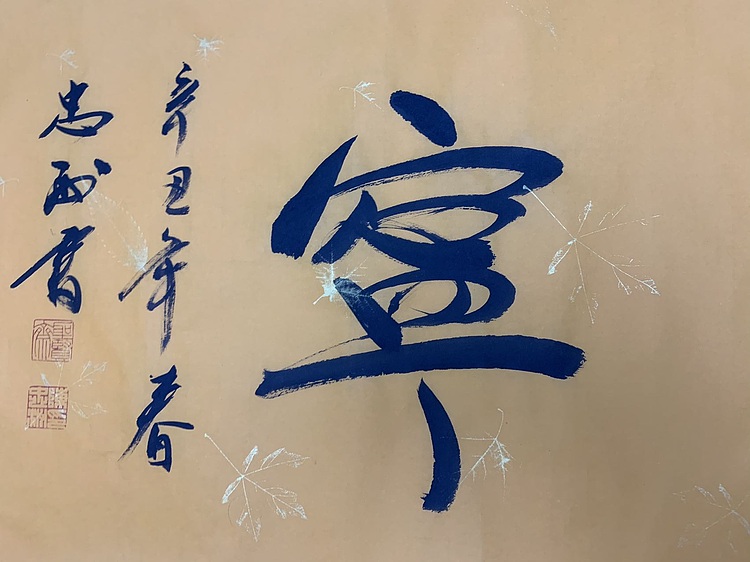 寧
辛丑年春
忠𢦏書